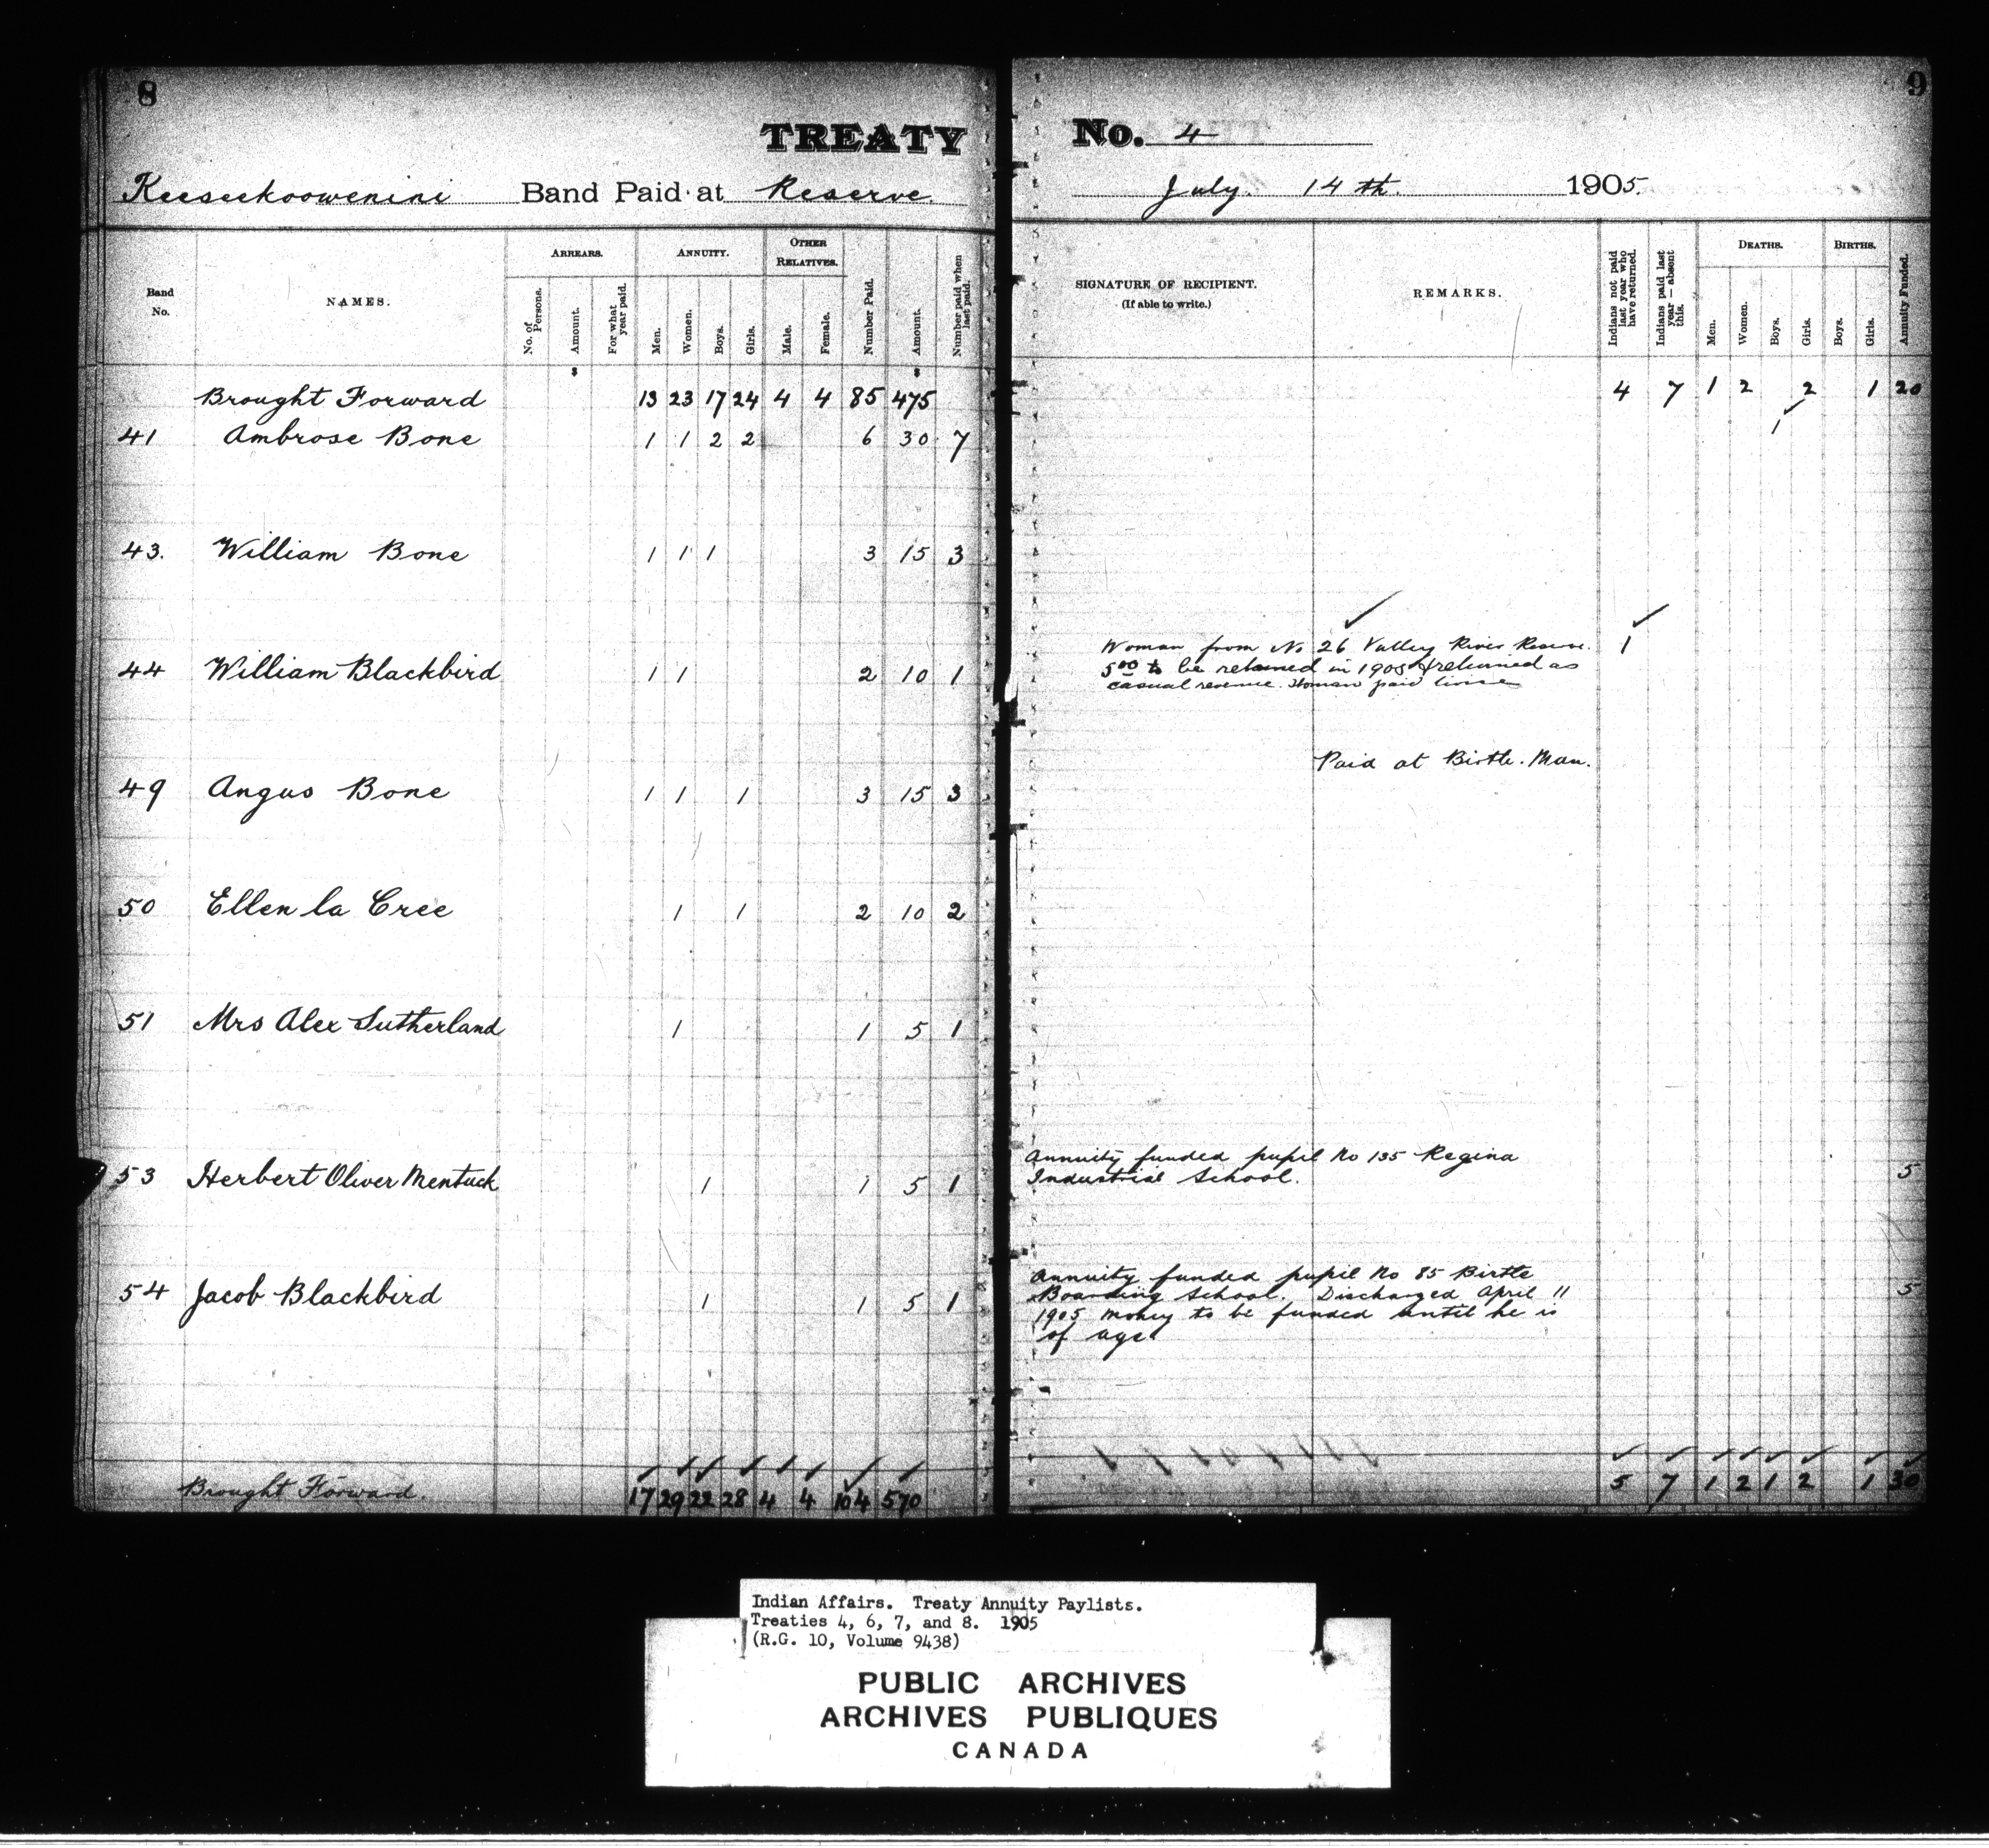 8
TREATY
Keeseekoowenini Band Paid at Reserve
Band No.
NAMES.
ARREARS.
No. of Persons.
Amount.
For what year paid.
ANNUITY.
Men.
Women.
Boys.
Girls.
OTHER RELATIVES.
Male.
Female.
Number Paid.
Amount.
Number paid when last paid.
$ $
Brought Forward 13 23 17 24 4 4 85 475
41 Ambrose Bone 1 1 2 2 6 30 7
43. William Bone 1 1 1 3 15 3
44 William Blackbird 1 1 2 10 1
49 Angus Bone 1 1 1 3 15 3
50 Ellen la Cree 1 1 2 10 2
51 Mrs Alex Sutherland 1 1 5 1
53 Herbert Oliver Mentuck 1 1 5 1
54 Jacob Blackbird 1 1 5 1
Brought Forward. 17 29 22 28 4 4 104 570
9
No. 4
July 14th. 1905.
SIGNATURE OF RECIPIENT.
(If able to write.)
REMARKS.
Indians not paid last year who have returned.
Indians paid last year — absent this.
DEATHS.
Men.
Women.
Boys.
Girls.
BIRTHS.
Boys.
Girls.
Annuity Funded.
4 7 1 2 2 1 20
1
Woman from No 26 Valley River Reserve. 1
5.00 to be retained in 1905 & returned as
casual revenue. Woman paid twice
Paid at Birtle. Man.
Annuity funded pupil No 135 Regina
Industrial School. 5
Annuity funded pupil No 85 Birtle
Boarding School. Discharged April 11 5
1905 money to be funded until he is
of age.
5 7 1 2 1 2 1 30
Indian Affairs. Treaty Annuity Paylists.
Treaties 4, 6, 7, and 8. 1905
(R.G. 10, Volume 9438)
PUBLIC ARCHIVES
ARCHIVES PUBLIQUES
CANADA